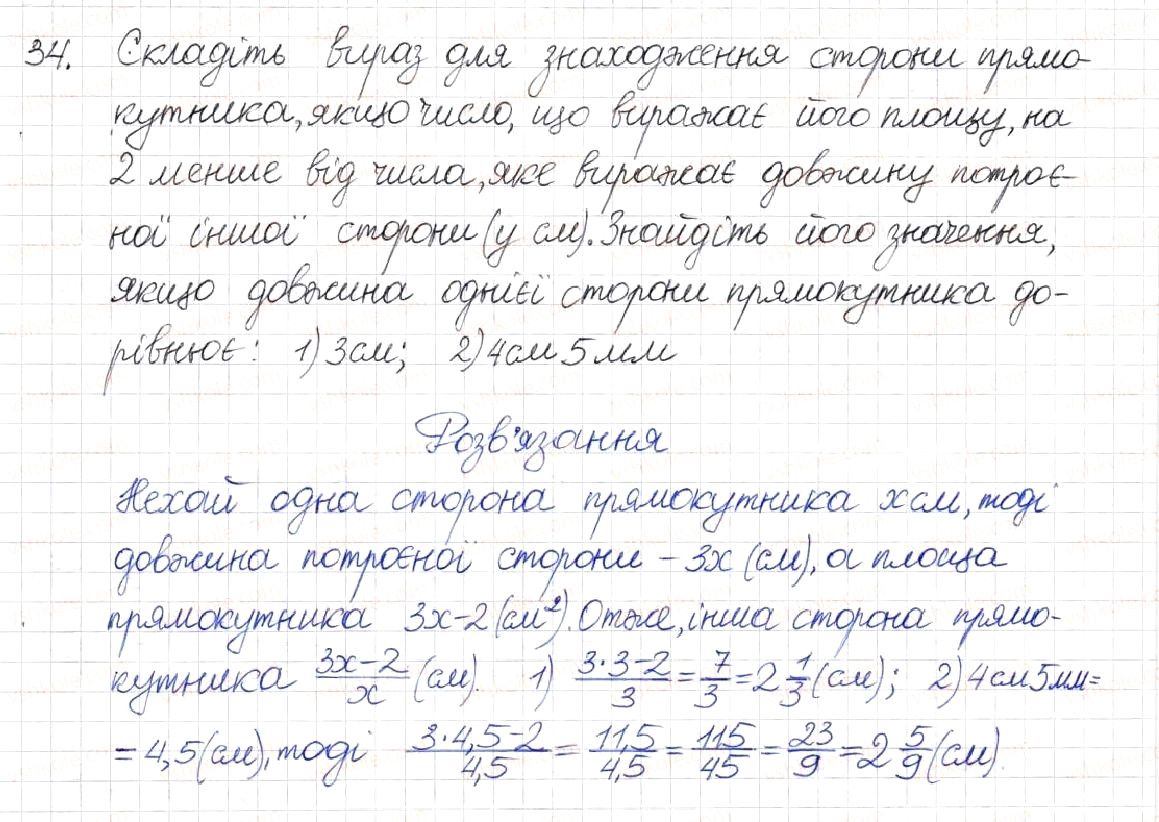 34. Складіть вираз для знаходження сторони прямо-
кутника, якщо число, що виражає його площу, на
2 менше від числа, яке виражає довжину потроє-
ної іншої сторони (у см). Знайдіть його значення,
якщо довжина однієї сторони прямокутника до-
рівнює: 1) 3см; 2) 4см 5мм
Розв'язання
Нехай одна сторона прямокутника x см, тоді
довжина потроєної сторони – 3x (см), а площа
прямокутника 3x-2 (см²). Отже, інша сторона прямо-
кутника (3x-2)/x (см). 1) (3·3-2)/3 = 7/3 = 2 1/3 (см); 2) 4см 5мм=
= 4,5 (см), тоді (3·4,5-2)/4,5 = 11,5/4,5 = 115/45 = 23/9 = 2 5/9 (см).